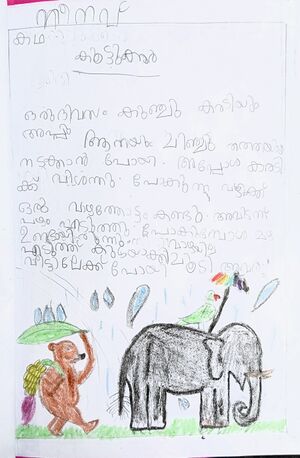 നീനവ്
കഥ
കൂട്ടുകാർ
ഒരു ദിവസം കുഞ്ചു കരടിയും
അപ്പു ആനയും ചിഞ്ചു തത്തയും
നടക്കാൻ പോയി. അപ്പോൾ കരടി
ക്ക് വിശന്നു. പോകുന്ന വഴിക്ക്
ഒരു വാഴത്തോട്ടം കണ്ടു. അവിടന്ന്
പഴം
പോകുമ്പോൾ മഴ
വീട്ടിലേക്ക് പോയി